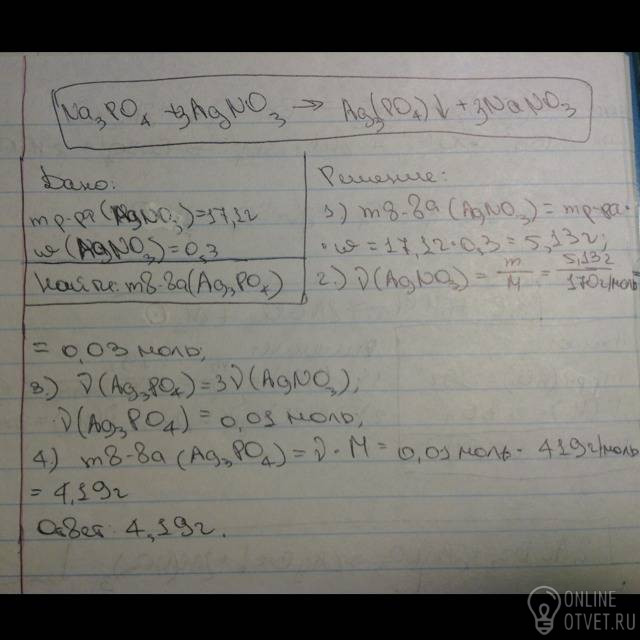 Na₃PO₄ + 3AgNO₃ → Ag₃(PO₄)↓ + 3NaNO₃
Дано:
m р-ра (AgNO₃) = 17,1г
w(AgNO₃) = 0,3
Найти: m в-ва (Ag₃PO₄)
Решение:
1) m в-ва (AgNO₃) = m р-ра ·
· w = 17,1г · 0,3 = 5,13г;
2) ν(AgNO₃) = m/M = 5,13г/170г/моль =
= 0,03 моль;
3) ν(Ag₃PO₄) = 3ν(AgNO₃);
ν(Ag₃PO₄) = 0,01 моль;
4) m в-ва (Ag₃PO₄) = ν · M = 0,01 моль · 419г/моль
= 4,19г
Ответ: 4,19г.
ONLINE
OTVET.RU